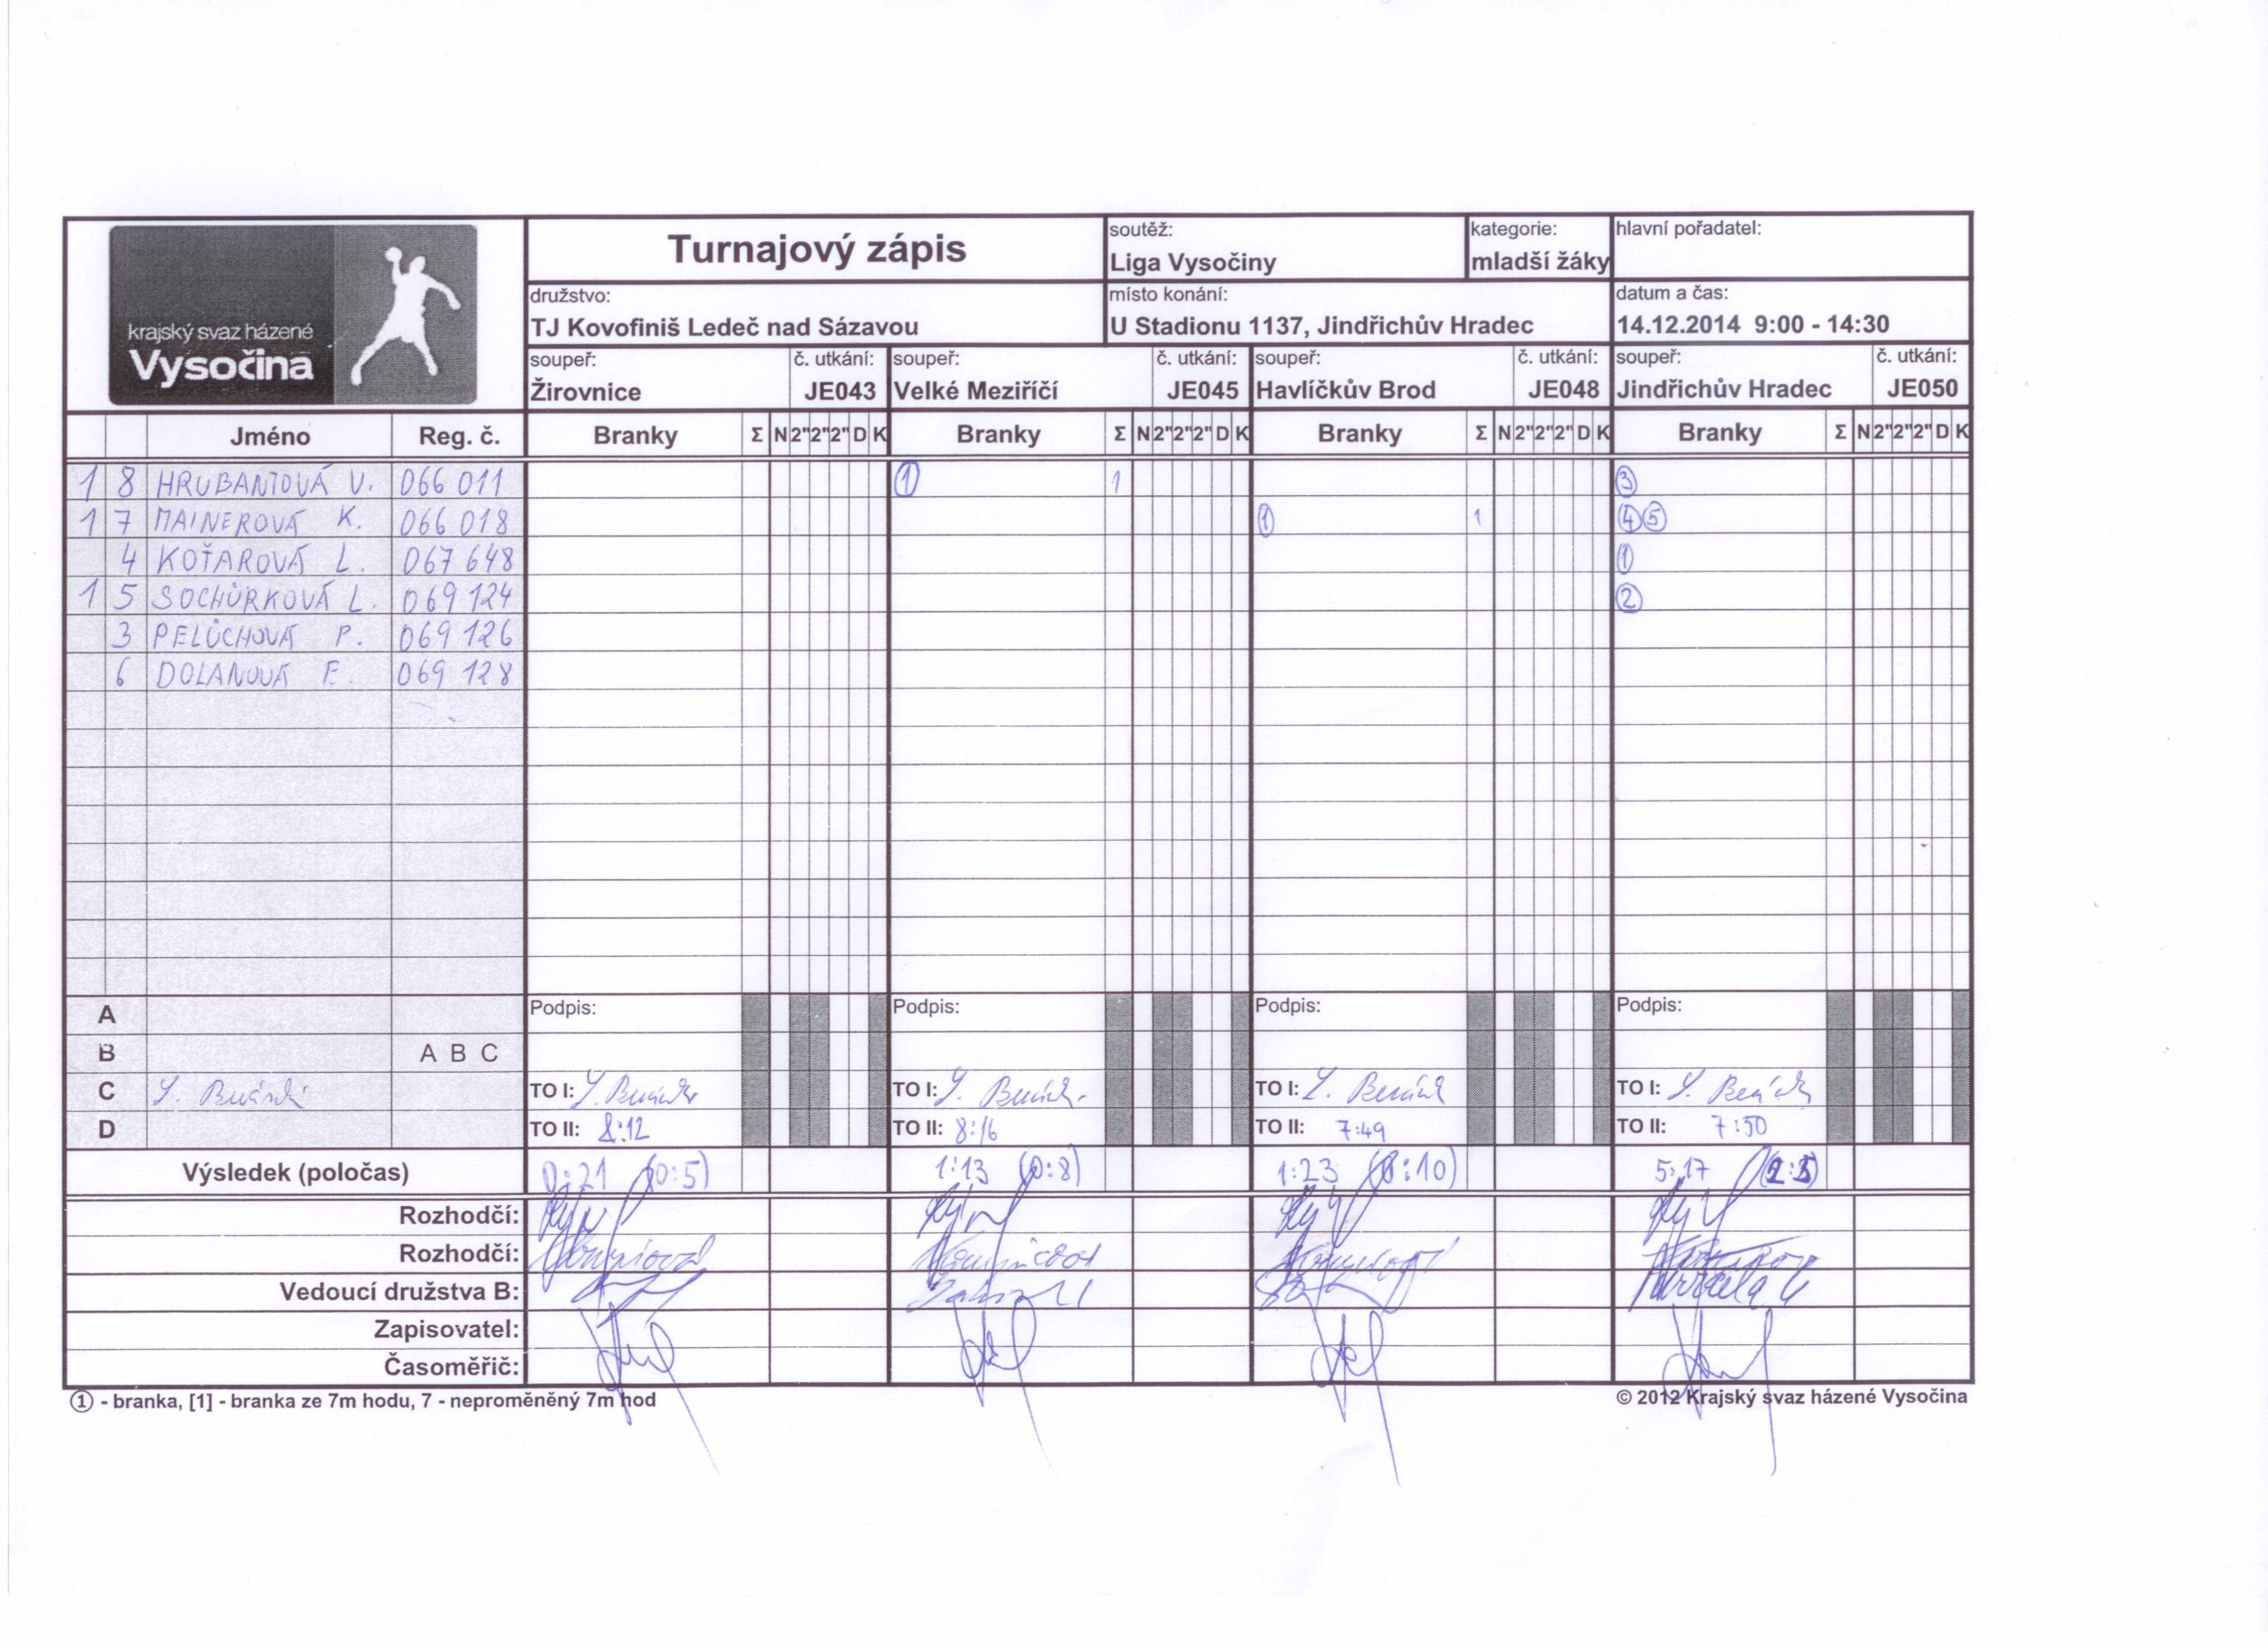 krajský svaz házené
Vysočina
Turnajový zápis
soutěž:
Liga Vysočiny
kategorie:
mladší žáky
hlavní pořadatel:
družstvo:
TJ Kovofiniš Ledeč nad Sázavou
místo konání:
U Stadionu 1137, Jindřichův Hradec
datum a čas:
14.12.2014 9:00 - 14:30
soupeř: č. utkání: soupeř: č. utkání: soupeř: č. utkání: soupeř: č. utkání:
Žirovnice JE043 Velké Meziříčí JE045 Havlíčkův Brod JE048 Jindřichův Hradec JE050
Jméno Reg. č. Branky Σ N 2" 2" 2" D K Branky Σ N 2" 2" 2" D K Branky Σ N 2" 2" 2" D K Branky Σ N 2" 2" 2" D K
1 8 HRUBANTOVÁ V. 066 011 ① 1 ③
1 7 MAINEROVÁ K. 066 018 ① 1 ④ ⑤
4 KOŤAROVÁ L. 067 648 ①
1 5 SOCHŮRKOVÁ L. 069 124 ②
3 PELŮCHOVÁ P. 069 126
6 DOLANOVÁ E. 069 128
A Podpis: Podpis: Podpis: Podpis:
B A B C
C TO I: TO I: TO I: TO I:
D TO II: 8:12 TO II: 8:16 TO II: 7:49 TO II: 7:50
Výsledek (poločas) 0:21 (0:5) 1:13 (0:8) 1:23 (0:10) 5:17
Rozhodčí:
Rozhodčí:
Vedoucí družstva B:
Zapisovatel:
Časoměřič:
① - branka, [1] - branka ze 7m hodu, 7 - neproměněný 7m hod
© 2012 Krajský svaz házené Vysočina